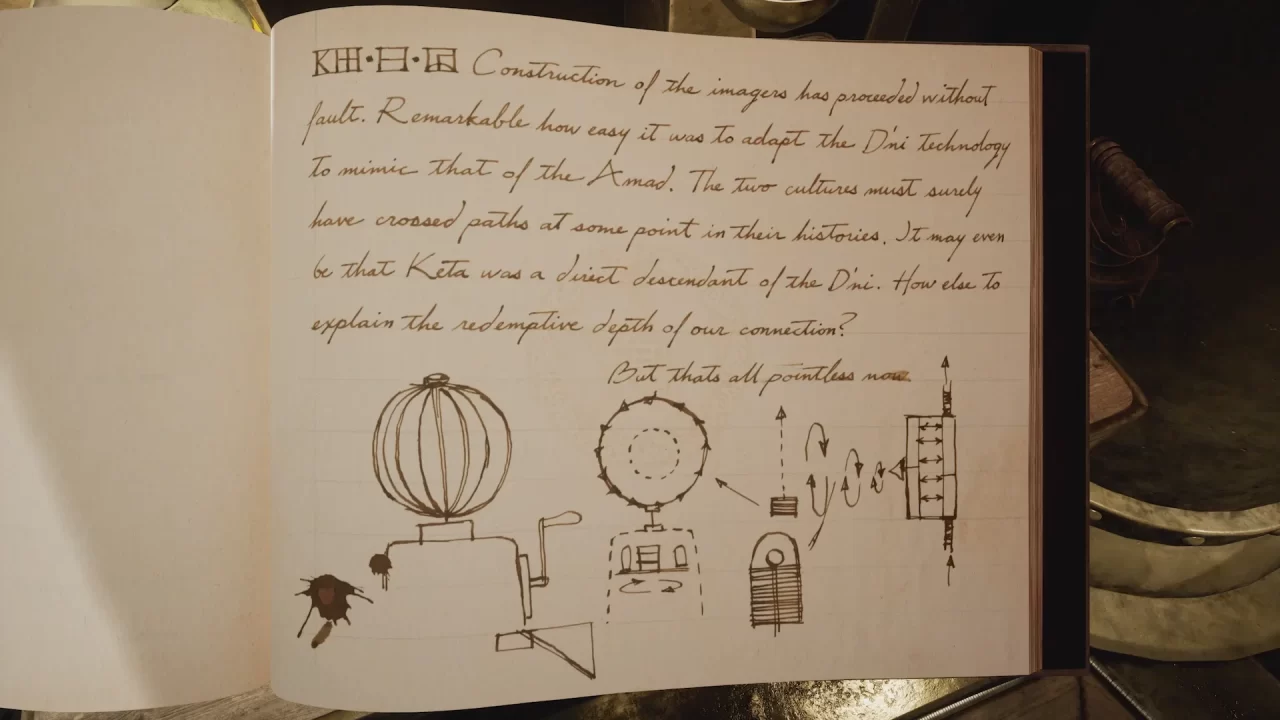 Construction of the imagers has proceeded without
fault. Remarkable how easy it was to adapt the D'ni technology
to mimic that of the Amad. The two cultures must surely
have crossed paths at some point in their histories. It may even
be that Keta was a direct descendant of the D'ni. How else to
explain the redemptive depth of our connection?
But thats all pointless now.